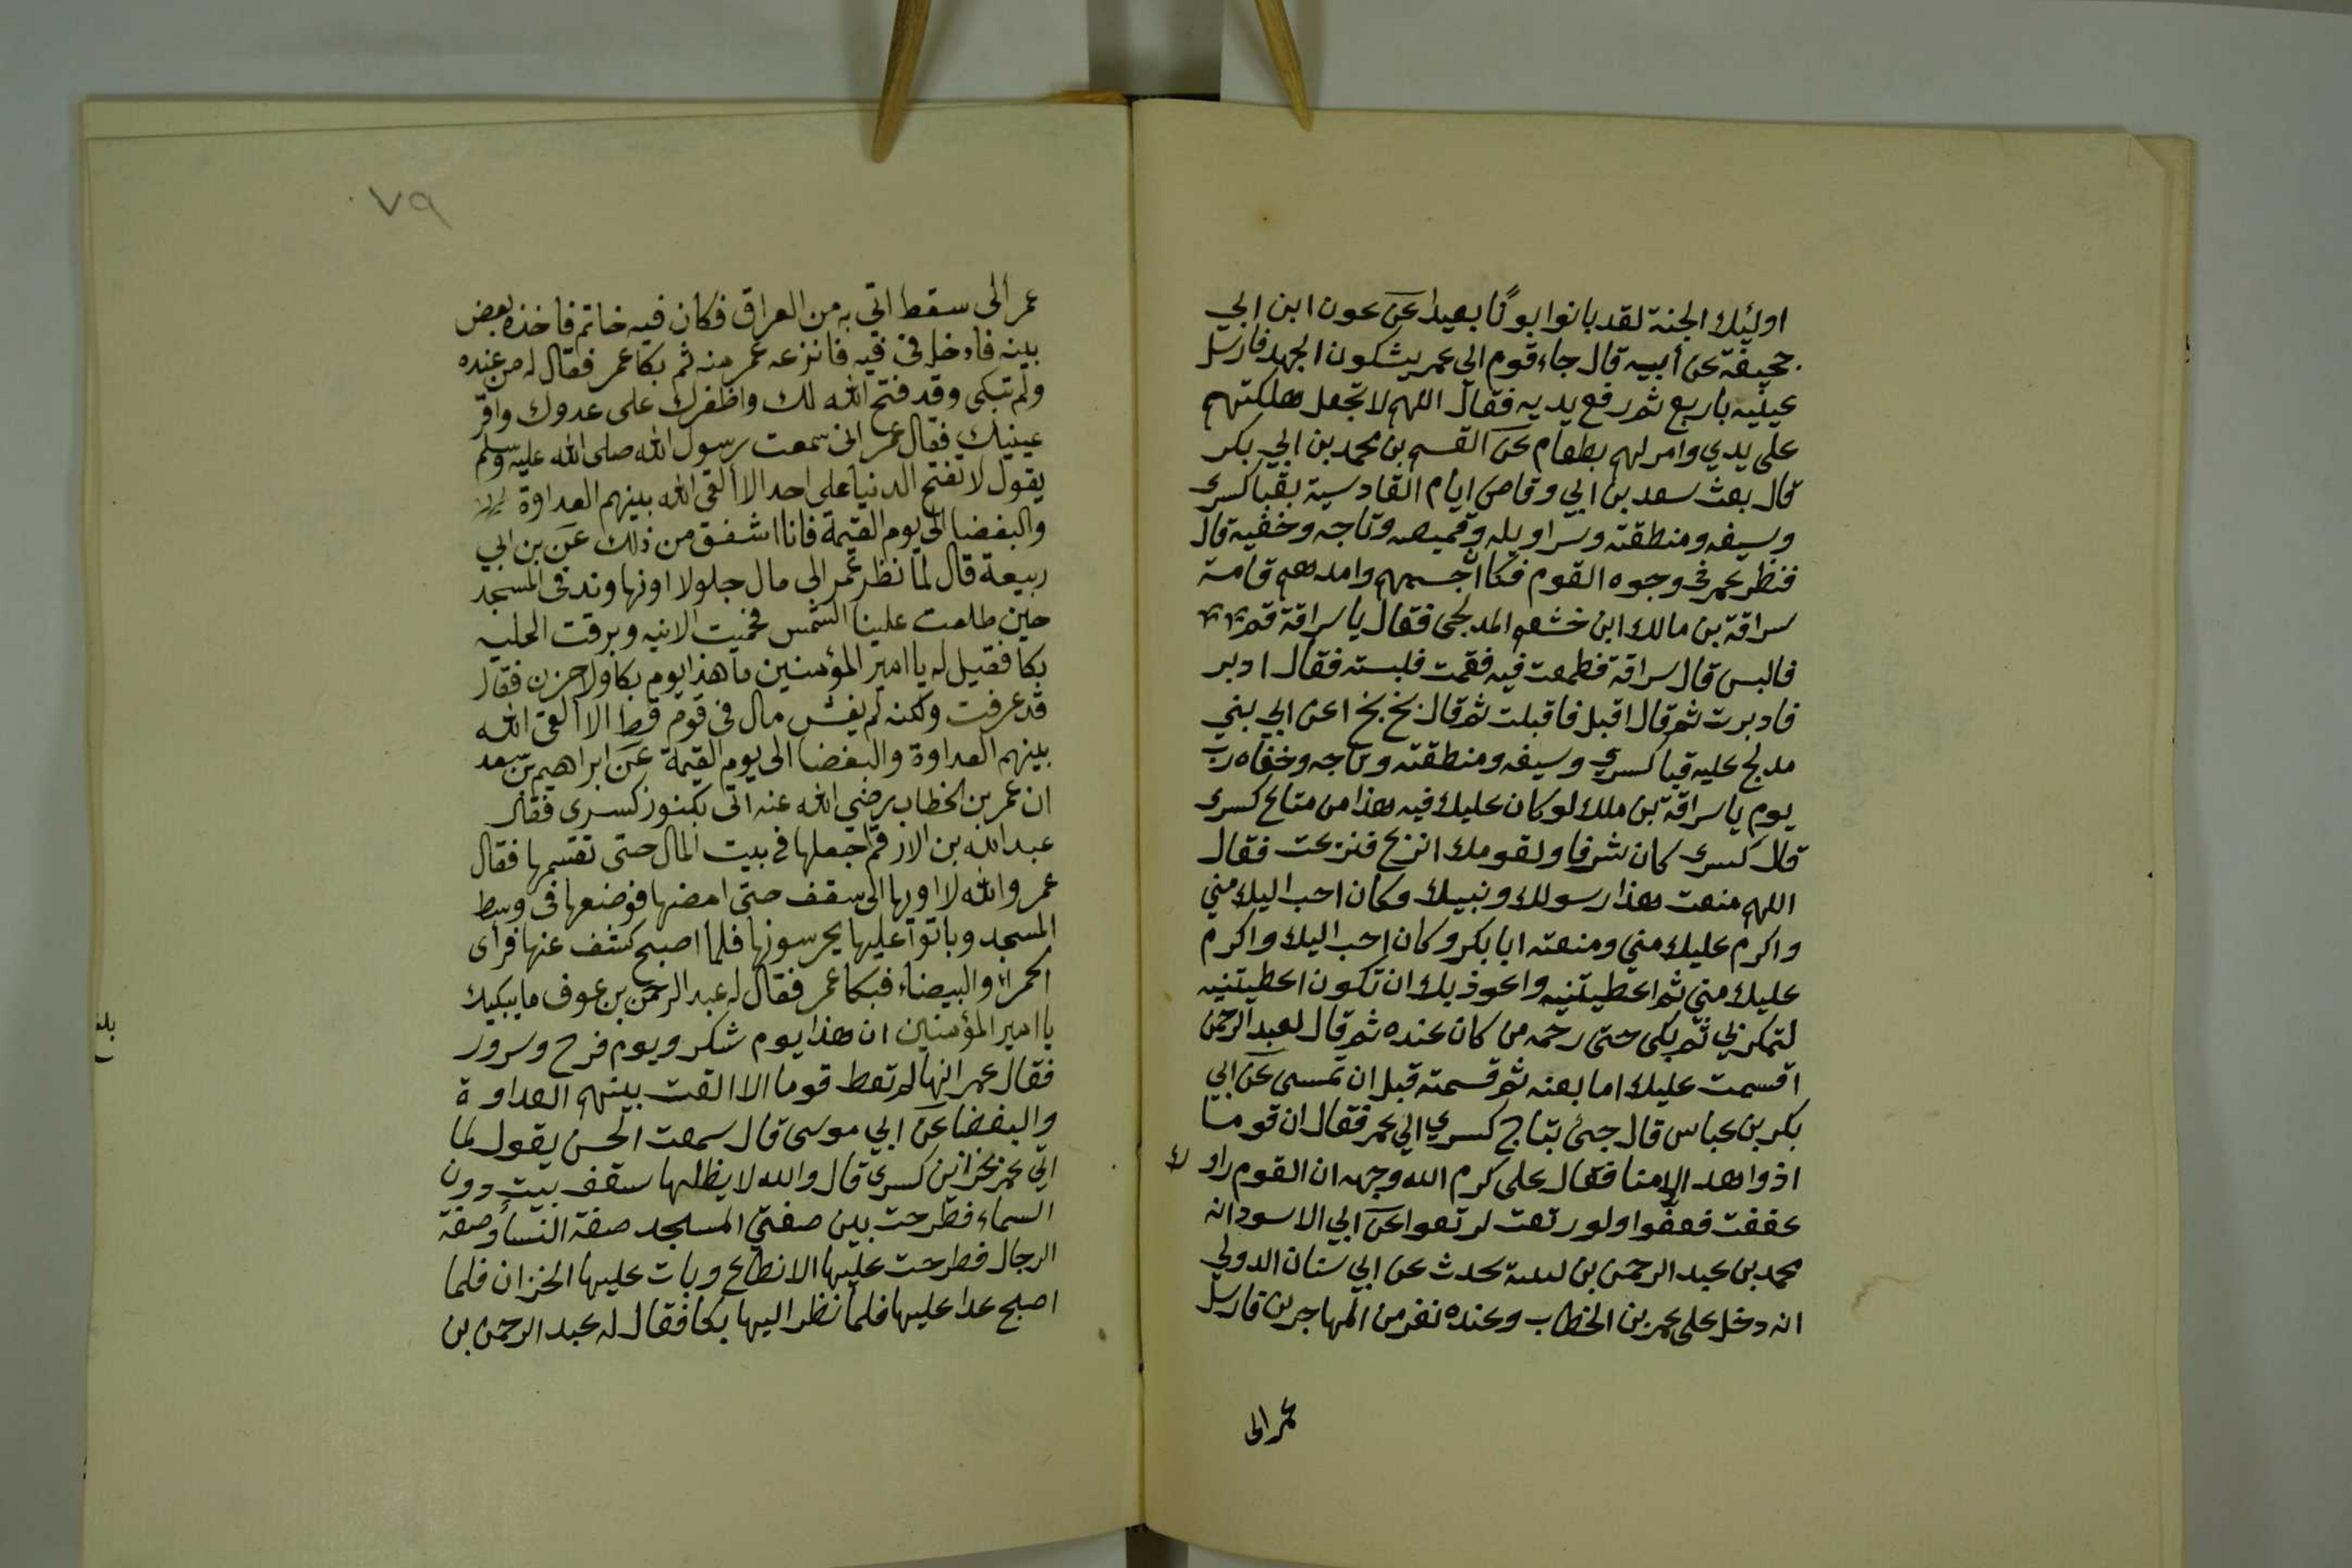 اولئك الجنة لقد بانوا بونًا بعيدا عن عون ابن ابي
جحيفة عن أبيه قال جاء قوم الى عمر يشكون الجهد فارسل
عينيه باربع ثم رفع يديه فقال اللهم لا تجعل هلكتهم
على يدي وامر لهم بطعام عن القسم بن محمد بن ابي بكر
قال بعث سعد بن ابي وقاص ايام القادسية بقبا كسرى
وسيفه ومنطقته وسراويله وقميصه وتاجه وخفيه قال
فنظر عمر في وجوه القوم فكان اجسمهم وامدهم قامة
سراقة بن مالك ابن خشعم المدلجي فقال يا سراقة قم
فالبس قال سراقة فطمعت فيه فقمت فلبسته فقال ادبر
فادبرت ثم قال اقبل فاقبلت ثم قال بخ بخ اعرابي بني
مدلج عليه قبا كسري وسيفه ومنطقته وتاجه وخفاه رب
يوم يا سراقة بن ملك لو كان عليك فيه هذا من متاع كسرى
قال كسرى كان شرفا ولقومك انزع فنزعت فقال
اللهم منعت هذا رسولك ونبيك وكان احب اليك مني
واكرم عليك مني ومنعته ابا بكر وكان احب اليك واكرم
عليك مني ثم اعطيتنيه واعوذ بك ان تكون اعطيتنيه
لتمكر بي ثم بكى حتى رحمه من كان عنده ثم قال لعبد الرحمن
اقسمت عليك اما بعته ثم قسمته قبل ان تمسى عن ابي
بكر بن عباس قال جئ بتاج كسري الي عمر فقال ان قوما
ادوا هد الامنا فقال على كرم الله وجهه ان القوم راوك
عففت فعفوا ولو رتعت لرتعوا عن ابي الاسود انه
محمد بن عبد الرحمن بن لبيبة يحدث عن ابي سنان الدولي
انه دخل على عمر بن الخطاب وعنده نفر من المهاجرين فارسل
عمر الى
٧٩
عمر الى سقط اتي به من العراق فكان فيه خاتم فاخذه بعض
بنيه فادخله في فيه فانزعه عمر منه ثم بكا عمر فقال له من عنده
ولم تبكى وقد فتح الله لك واظفرك على عدوك واقر
عينيك فقال عمر اني سمعت رسول الله صلى الله عليه وسلم
يقول لا تفتح الدنيا على احد الا القى الله بينهم العداوة
والبغضا الى يوم القيمة فانا اشفق من ذلك عن بن ابي
ربيعة قال لما نظر عمر الى مال جلولا اونهاوند في المسجد
حين طلعت علينا الشمس فحميت الانيه وبرقت الحليه
بكا فقيل له يا امير المؤمنين ما هذا يوم بكا ولا حزن فقال
قد عرفت ولكنه لم يفش مال في قوم قط الا القى الله
بينهم العداوة والبغضا الى يوم القيمة عن ابراهيم بن سعد
ان عمر بن الخطاب رضي الله عنه اتى بكنوز كسرى فقال
عبد الله بن الارقم اجعلها في بيت المال حتى تقسمها فقال
عمر والله لا اويها الى سقف حتى امضيها فوضعها في وسط
المسجد وباتوا عليها يحرسونها فلما اصبح كشف عنها فرأى
الحمراء والبيضاء فبكا عمر فقال له عبد الرحمن بن عوف ما يبكيك
يا امير المؤمنين ان هذا يوم شكر ويوم فرح وسرور
فقال عمر انها لم تعط قوما الا القت بينهم العداوة
والبغضا عن ابي موسى قال سمعت الحسن يقول لما
اتي عمر بخزائن كسرى قال والله لا يظلها سقف بيت دون
السماء فطرحت بين صفتي المسجد صفة النسا وصفة
الرجال فطرحت عليها الانطاع وبات عليها الخزان فلما
اصبح غدا عليها فلما نظر اليها بكا فقال له عبد الرحمن بن
بلغ